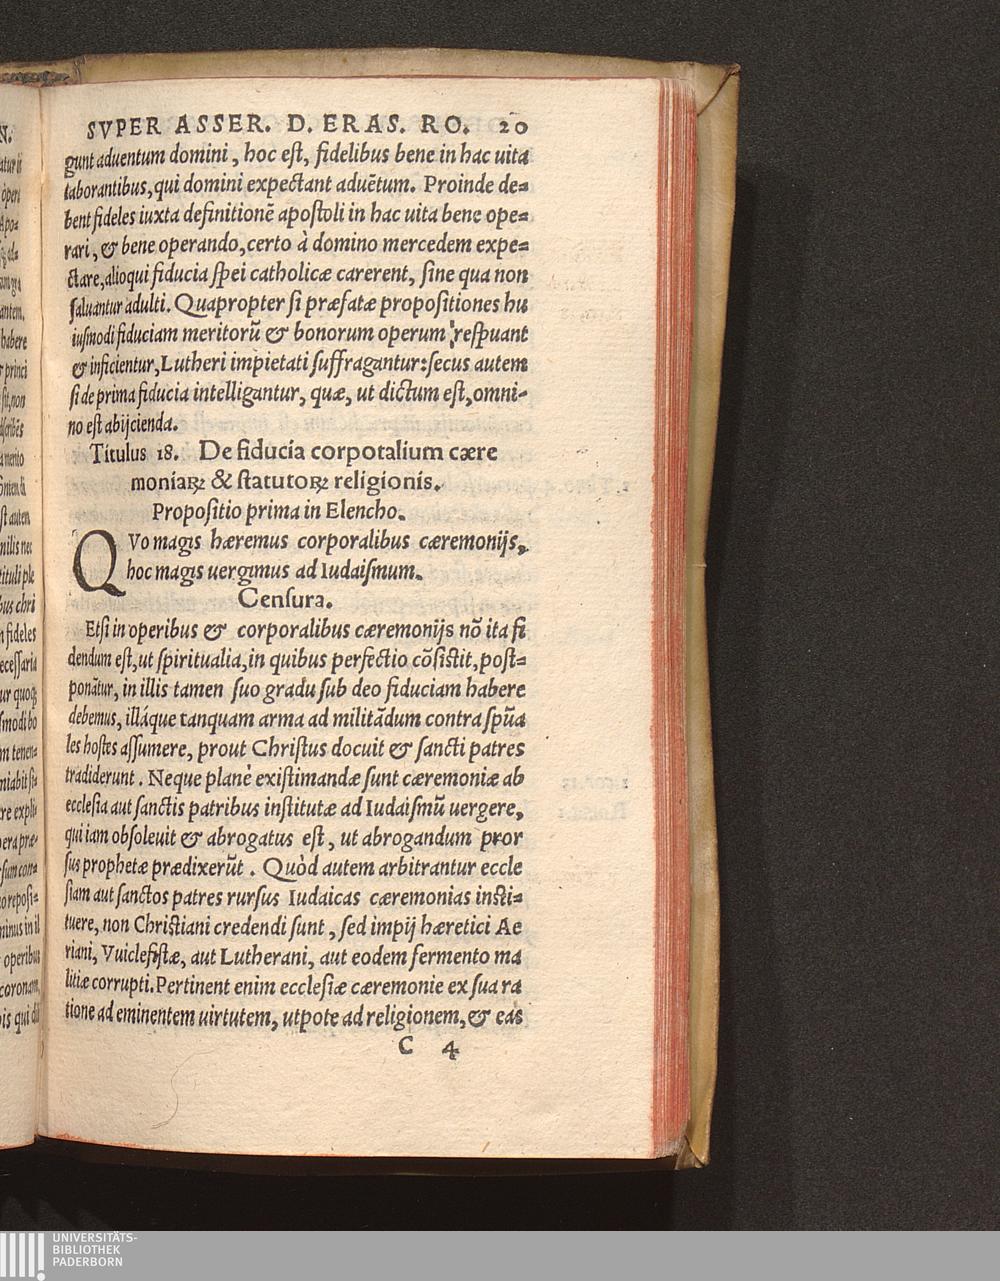 SVPER ASSER. D. ERAS. RO. 20
gunt aduentum domini, hoc est, fidelibus bene in hac uita
laborantibus, qui domini expectant aduētum. Proinde de=
bent fideles iuxta definitionē apostoli in hac uita bene ope=
rari, & bene operando, certo à domino mercedem expe=
ctare, alioqui fiducia spei catholicæ carerent, sine qua non
saluantur adulti. Quapropter si præfatæ propositiones hu
iusmodi fiduciam meritorū & bonorum operum respuant
& inficientur, Lutheri impietati suffragantur: secus autem
si de prima fiducia intelligantur, quæ, ut dictum est, omni-
no est abijcienda.
Titulus 18. De fiducia corpotalium cære
moniaꝝ & statutoꝝ religionis.
Propositio prima in Elencho.
QVo magis hæremus corporalibus cæremonijs,
hoc magis uergimus ad Iudaismum.
Censura.
Etsi in operibus & corporalibus cæremonijs nō ita fi
dendum est, ut spiritualia, in quibus perfectio cōsistit, post=
ponātur, in illis tamen suo gradu sub deo fiduciam habere
debemus, illáque tanquam arma ad militādum contra spūa
les hostes assumere, prout Christus docuit & sancti patres
tradiderunt. Neque planè existimandæ sunt cæremoniæ ab
ecclesia aut sanctis patribus institutæ ad Iudaismū uergere,
qui iam obsoleuit & abrogatus est, ut abrogandum pror
sus prophetæ prædixerūt. Quòd autem arbitrantur eccle
siam aut sanctos patres rursus Iudaicas cæremonias insti=
tuere, non Christiani credendi sunt, sed impij hæretici Ae
riani, Vuiclefistæ, aut Lutherani, aut eodem fermento ma
litiæ corrupti. Pertinent enim ecclesiæ cæremonie ex sua ra
tione ad eminentem uirtutem, utpote ad religionem, & eas
C 4
UNIVERSITÄTS-
BIBLIOTHEK
PADERBORN